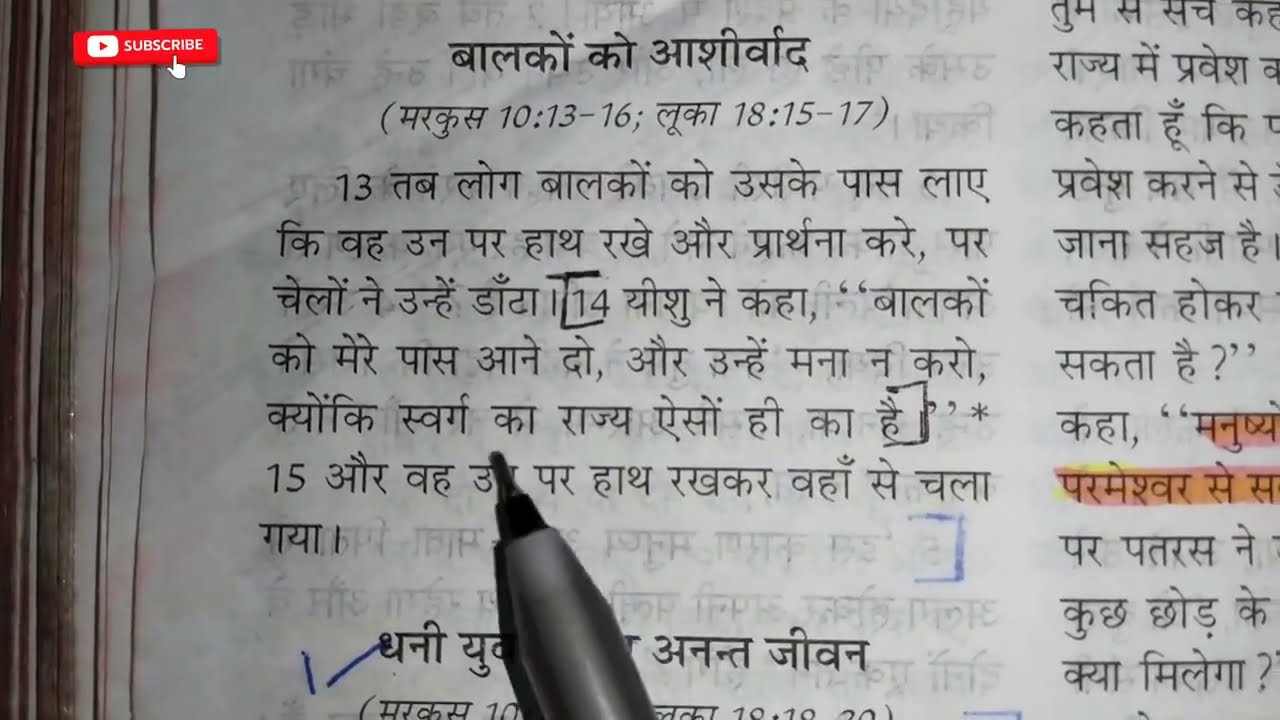 SUBSCRIBE
बालकों को आशीर्वाद
(मरकुस 10:13-16; लूका 18:15-17)
13 तब लोग बालकों को उसके पास लाए
कि वह उन पर हाथ रखे और प्रार्थना करे, पर
चेलों ने उन्हें डाँटा। 14 यीशु ने कहा, ‘‘बालकों
को मेरे पास आने दो, और उन्हें मना न करो,
क्योंकि स्वर्ग का राज्य ऐसों ही का है।’’*
15 और वह उन पर हाथ रखकर वहाँ से चला
गया।
धनी अनन्त जीवन
(मरकुस 10 लूका 18:18-30)
तुम से सच
राज्य में प्रवेश
कहता हूँ कि
प्रवेश करने से
जाना सहज है।
चकित होकर
सकता है?’’
कहा, ‘‘
परमेश्वर से
पर पतरस ने
कुछ छोड़ के
क्या मिलेगा?